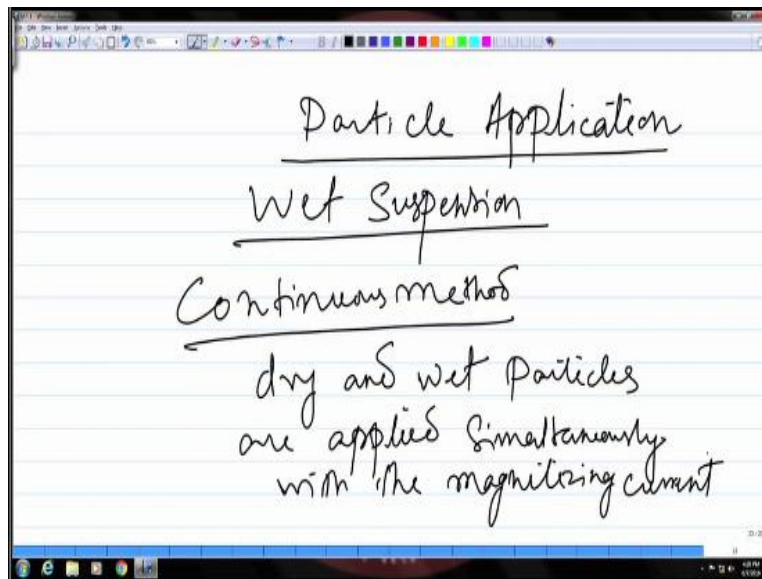 Particle Application
Wet Suspension
Continuous method
dry and wet particles
are applied simultaneously
with the magnitizing current